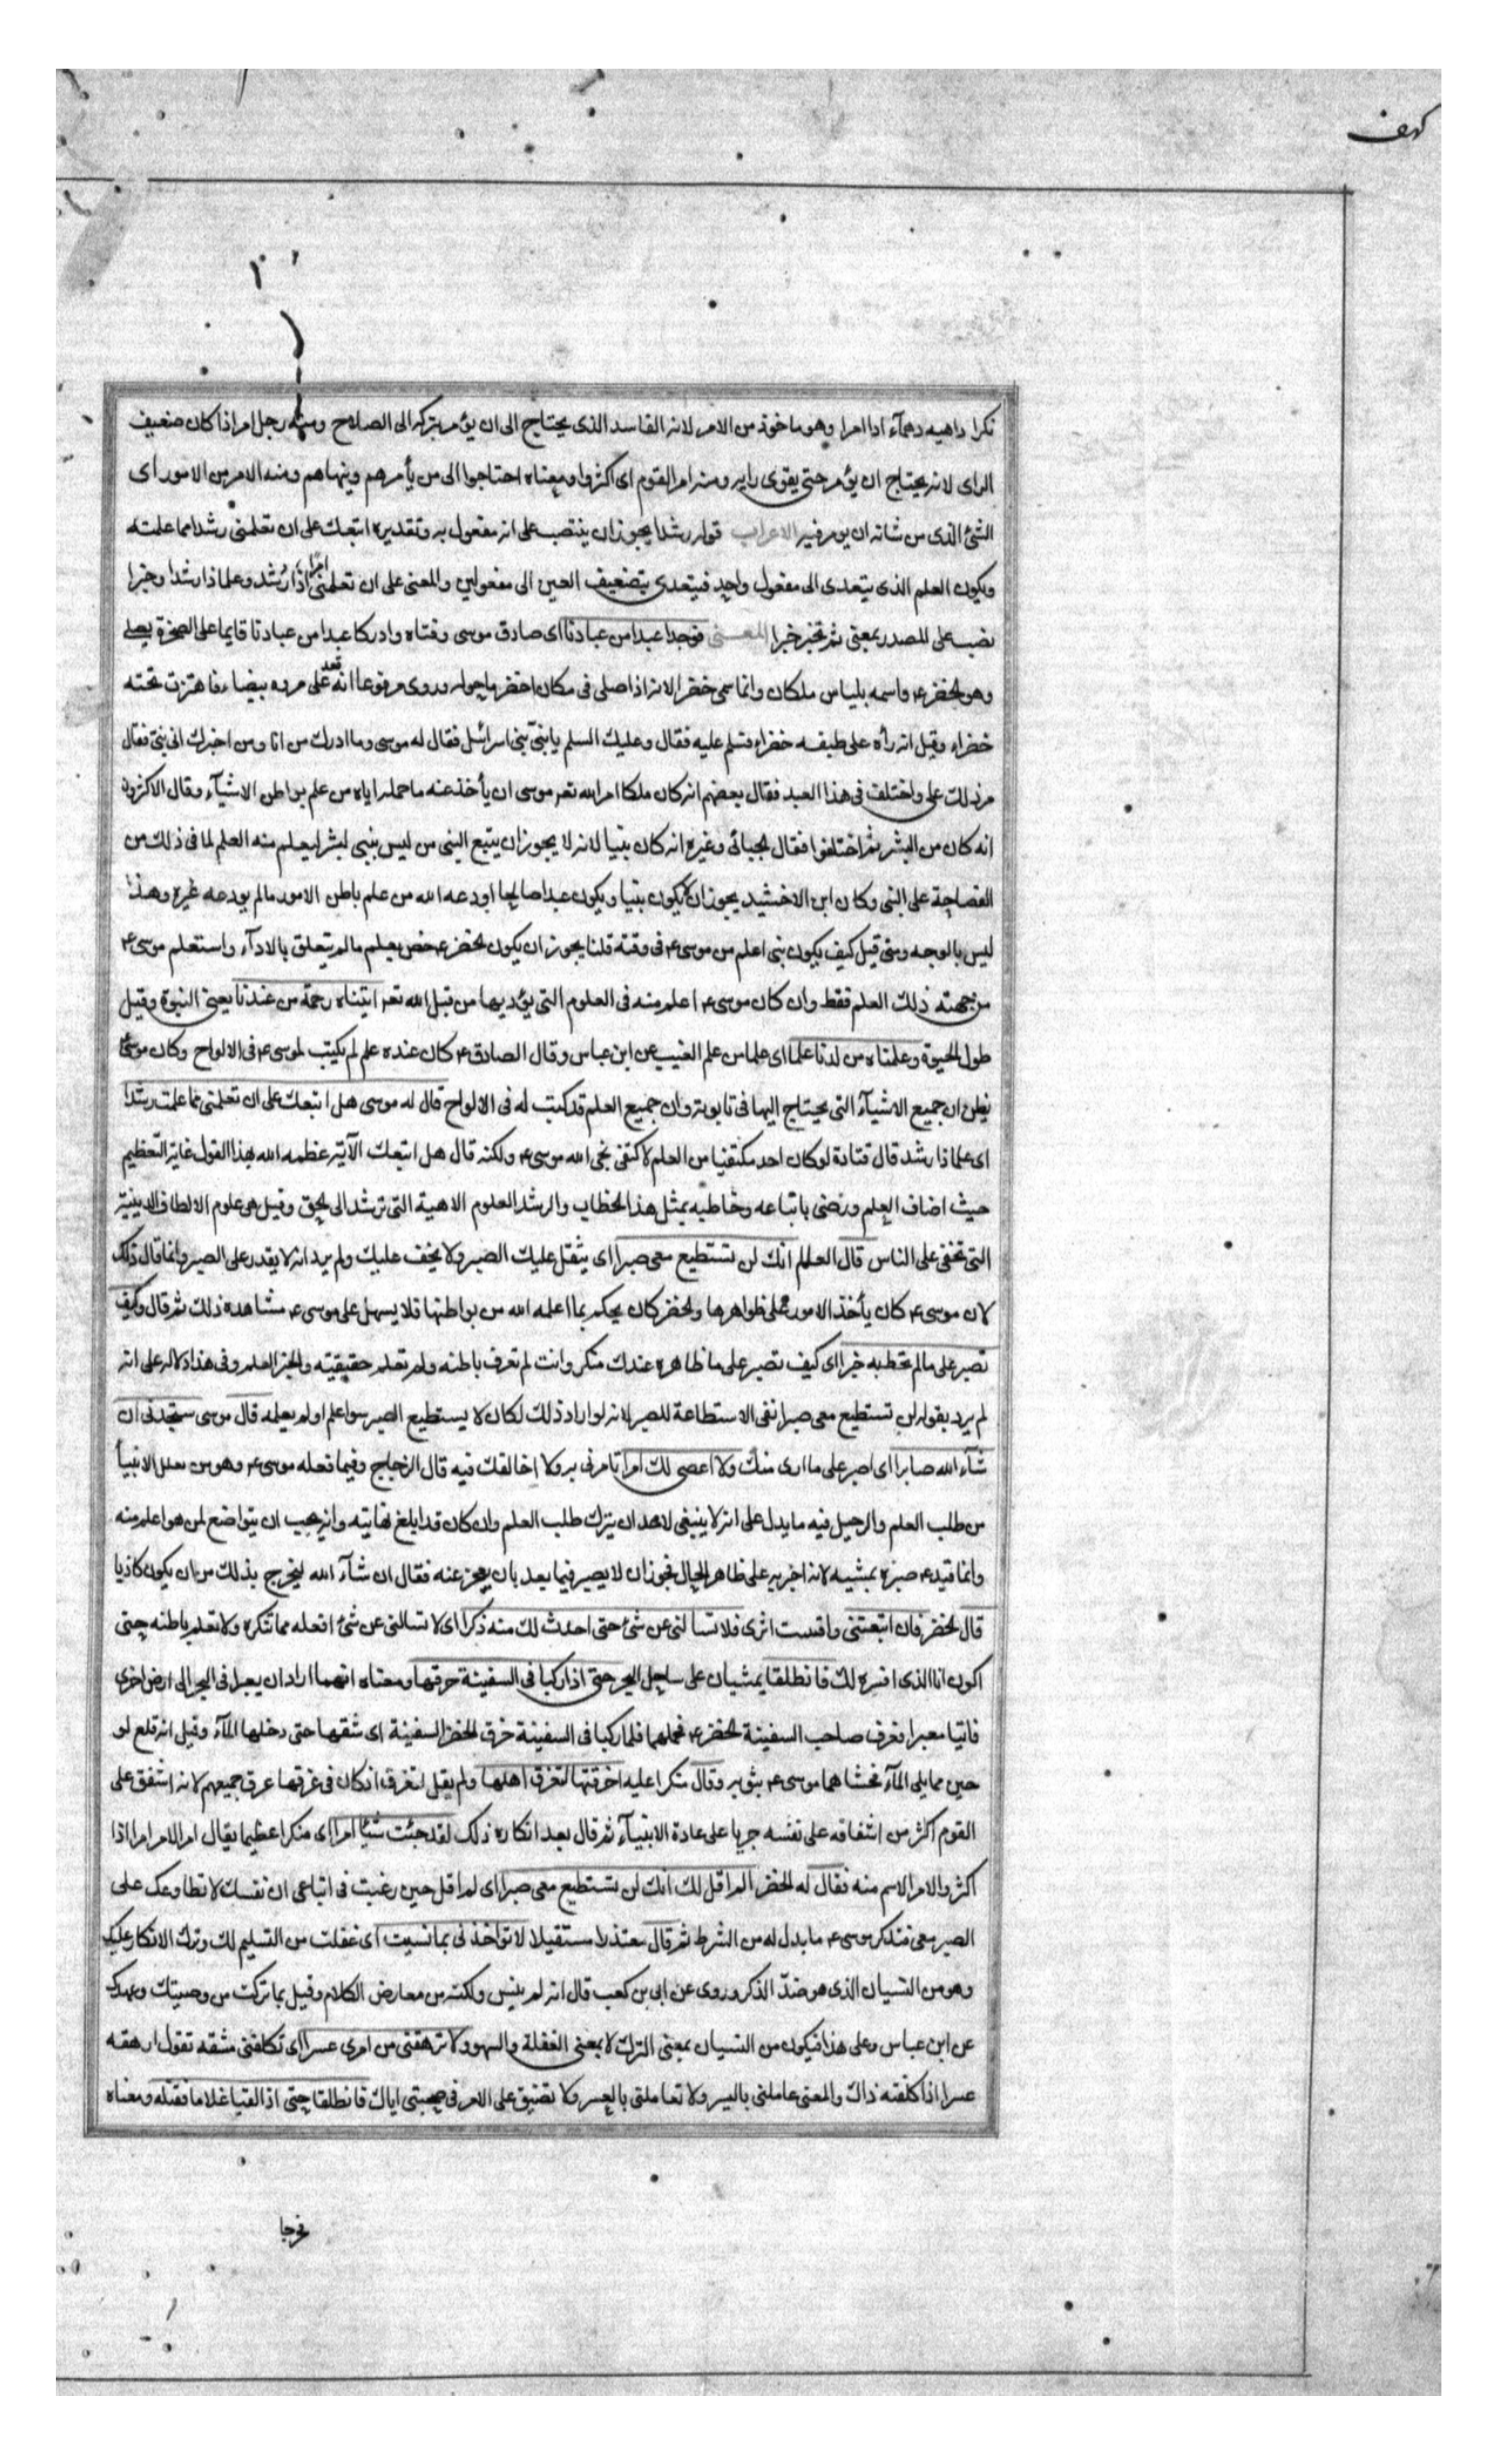 كهف
نكرا داهيه دهمآء ادا امرا وهو ماخوذ من الامر لانه الفاسد الذى يحتاج الى ان يؤمر بتركه الى الصلاح ومنه رجل امر اذا كان ضعيف
الراى لانه يحتاج ان يؤمر حتى يقوى رايه ومنه امر القوم اى اكثروا ومعناه احتاجوا الى من يأمرهم وينهاهم ومنه الامر من الامور اى
الشئ الذى من شانه ان يومر فيه الاعراب قوله رشدا يجوز ان ينتصب على انه مفعول به وتقديره اتبعك على ان تعلمنى رشدا مما علمته
ويكون العلم الذى يتعدى الى مفعول واحد فيتعدى بتضعيف العين الى مفعولين والمعنى على ان تعلمنى امرا ذا رشد وعلما ذا رشد وخبرا
نصب على المصدر بمعنى لم تخبر خبرا المعنى فوجدا عبدا من عبادنا اى صادق موسى وفتاه وادركا عبدا من عبادنا قايما على الصخرة يصلى
وهو الخضر ۴ واسمه بلياس ملكان وانما سمى خضرا لانه اذا صلى فى مكان اخضر ما حوله وروى مرفوعا انه قعد على مروه بيضاء فاهتزت تحته
خضراء وقيل انه رأه على طيفسه خضراء فسلم عليه فقال وعليك السلم يا نبىّ بنى اسرائيل فقال له موسى وما ادرك من انا ومن اخبرك انى نبى فقال
من ذلك على واختلف فى هذا العبد فقال بعضهم انه كان ملكا امر الله تعـ موسى ان يأخذ عنه ما حمله اياه من علم بواطن الاشيآء وقال الاكثرون
انه كان من البشر ثم اختلفوا فقال الجبائى وغيره انه كان نبيا لانه لا يجوز ان يتبع النبى من ليس بنبى لبشر ليعلم منه العلم لما فى ذلك من
الغضاضة على النبى وكان ابن الاخشيد يجوز ان لا يكون نبيا ويكون عبدا صالحا اودعه الله من علم باطن الامور ما لم يودعه غيره وهذا
ليس بالوجه ومتى قيل كيف يكون نبى اعلم من موسى ۴ فى وقته قلنا يجوز ان يكون الخضر ۴ خص بعلم ما لم يتعلق بالادآء واستعلم موسى ۴
من جهته ذلك العلم فقط وان كان موسى ۴ اعلم منه فى العلوم التى يؤديها من قبل الله تعـ اتيناه رحمة من عندنا يعنى النبوة وقيل
طول الحيوة وعلمناه من لدنا علما اى علما من علم الغيب عن ابن عباس وقال الصادق ۴ كان عنده علم لم يكتب لموسى ۴ فى الالواح وكان موسى ۴
يظن ان جميع الاشيآء التى يحتاج اليها فى تابوته وان جميع العلم قد كتب له فى الالواح قال له موسى هل اتبعك على ان تعلمنى مما علمت رشدا
اى علما ذا رشد قال قتادة لو كان احد مكتفيا من العلم لاكتفى نجى الله موسى ۴ ولكنه قال هل اتبعك الآية عظمه الله بهذا القول غاية التعظيم
حيث اضاف العلم ورضى باتباعه وخاطبه بمثل هذا الخطاب والرشد العلوم الاهية التى ترشد الى الحق وقيل هى علوم الالطاف الدينية
التى تخفى على الناس قال العالم انك لن تستطيع معى صبرا اى يثقل عليك الصبر ولا يخف عليك ولم يرد انه لا يقدر على الصبر وانما قال ذلك
لان موسى ۴ كان يأخذ الامور على ظواهرها والخضر كان يحكم بما اعلمه الله من بواطنها فلا يسهل على موسى ۴ مشاهده ذلك ثم قال وكيف
تصبر على ما لم تحط به خبرا اى كيف تصبر على ما ظاهره عندك منكر وانت لم تعرف باطنه ولم تعلم حقيقته والخبر العلم وفى هذا دلاله على انه
لم يرد بقوله لن تستطيع معى صبرا نفى الاستطاعة للصبر لانه لو اراد ذلك لكان لا يستطيع الصبر سوا علم او لم يعلمه قال موسى ستجدنى ان
شآء الله صابرا اى اصبر على ما ارى منك ولا اعصى لك امرا تامرنى به ولا اخالفك فيه قال الزجاج وفيما فعله موسى ۴ وهو من الانبيآ
من طلب العلم والرحيل فيه ما يدل على انه لا ينبغى لاحد ان يترك طلب العلم وان كان قد بلغ نهايته وانه يجب ان يتواضع لمن هو اعلم منه
وانما قيد ۴ صبره بمشيه لانه اخبر به على ظاهر الحال فجوز ان لا يصبر فيما بعد بان يعجز عنه فقال ان شآء الله ليخرج بذلك من ان يكون كاذبا
قال الخضر فان اتبعتنى واقتست اثرى فلا تسالنى عن شئ حتى احدث لك منه ذكرا اى لا تسالنى عن شئ افعله مما تنكره ولا تعلم باطنه حتى
اكون انا الذى افسره لك فانطلقا يمشيان على ساحل البحر حتى اذا ركبا فى السفينة خرقها ومعناه انهما ارادا ان يعبرا فى البحر الى ارض اخرى
فاتيا معبرا فعرف صاحب السفينة الخضر ۴ فحملهما فلما ركبا فى السفينة خرق الخضر السفينة اى شقها حتى دخلها المآء وقيل انه قلع لو
حين مما يلى المآء فحشاهما موسى ۴ بثوبه وقال منكرا عليه اخرقتها لتغرق اهلها ولم يقل لنغرق ان كان فى غرقها غرق جميعهم لانه اشفق على
القوم اكثر من اشفاقه على نفسه جريا على عادة الانبيآء ثم قال بعد انكاره ذلك لقد جئت شيئا امرا اى منكرا عظيما يقال امر الامر امرا اذا
اكثر والامر الاسم منه فقال له الخضر الم اقل لك انك لن تستطيع معى صبرا اى لم اقل حين رغبت فى اتباعى ان نفسك لا تطاوعك على
الصبر معى فتذكر موسى ۴ ما بدل له من الشرط ثم قال معتذرا مستقيلا لا تواخذنى بما نسيت اى غفلت من التسليم لك وترك الانكار عليك
وهو من النسيان الذى هو ضدّ الذكر وروى عن ابى بن كعب قال انه لم ينس ولكنه من معارض الكلام وقيل بما تركت من وصيتك وعهدك
عن ابن عباس وعلى هذا فيكون من النسيان بمعنى الترك لا بمعنى الغفلة والسهو ولا ترهقنى من امرى عسرا اى تكلفنى مشقه تقول ارهقه
عسرا اذا كلفته ذاك والمعنى عاملنى باليسر ولا تعاملنى بالعسر ولا تضيق على الامر فى صحبتى اياك فانطلقا حتى اذا لقيا غلاما فقتله ومعناه
فخرجا